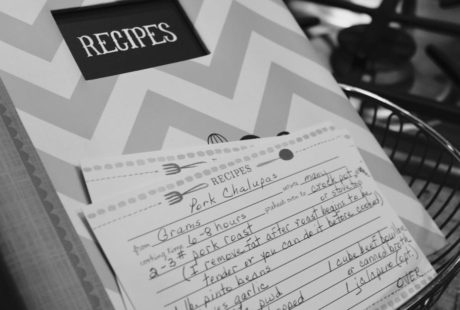 RECIPES
RECIPES
Pork Chalupas
from Grams serves many
cooking time 6-8 hours preheat oven to crock pot
2-3# pork roast or stove top
(I remove fat after roast begins to be
tender or you can do it before cooked)
pinto beans
garlic 1 cube beef bouillon
pwd or canned broth
chopped 1 jalapeño (opt.)
OVER